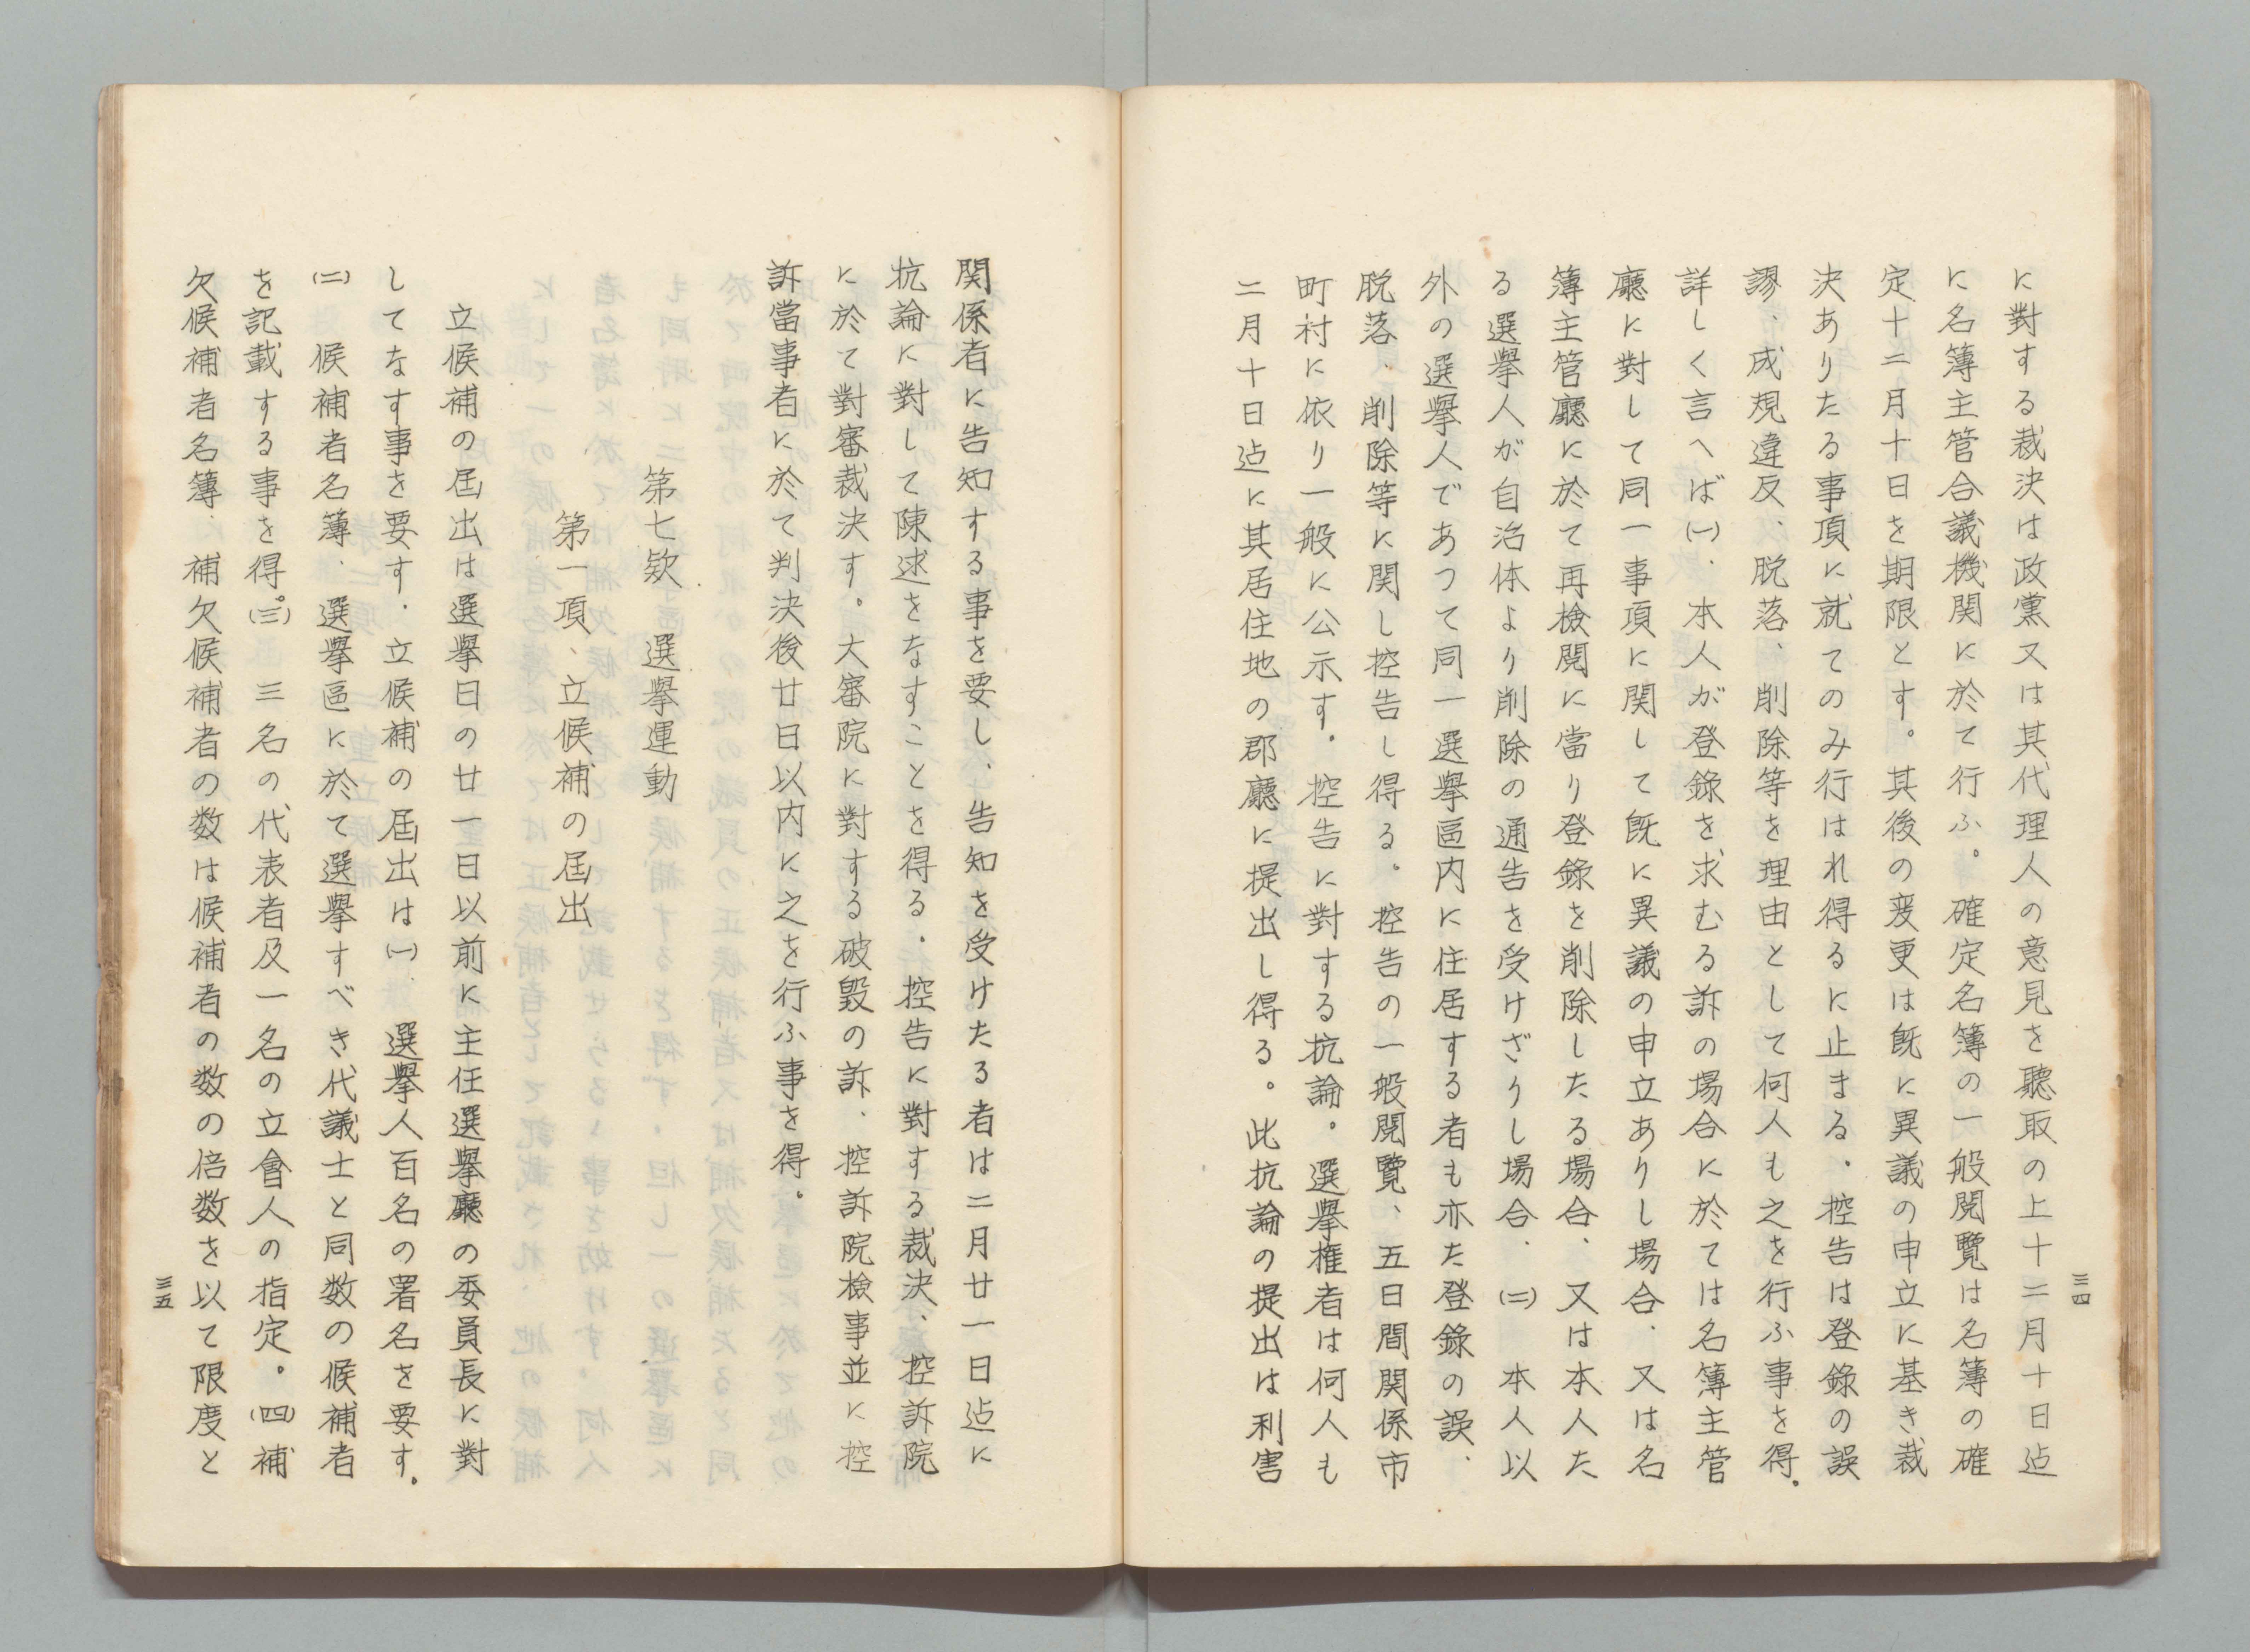 三四
に對する裁決は政黨又は其代理人の意見を聽取の上十二月十日迠
に名簿主管合議機関に於て行ふ。確定名簿の一般閲覽は名簿の確
定十二月十日を期限とす。其後の変更は既に異議の申立に基き裁
決ありたる事項に就てのみ行はれ得るに止まる。控告は登錄の誤
謬、成規違反、脱落、削除等を理由として何人も之を行ふ事を得。
詳しく言へば㈠、本人が登錄を求むる訴の場合に於ては名簿主管
廳に對して同一事項に関して既に異議の申立ありし場合、又は名
簿主管廳に於て再檢閲に當り登錄を削除したる場合、又は本人た
る選擧人が自治体より削除の通告を受けざりし場合、㈡ 本人以
外の選擧人であつて同一選擧區内に住居する者も亦た登錄の誤、
脱落、削除等に関し控告し得る。控告の一般閲覽、五日間関係市
町村に依り一般に公示す。控告に對する抗論。選擧権者は何人も
二月十日迠に其居住地の郡廳に提出し得る。此抗論の提出は利害
関係者に告知する事を要し、告知を受けたる者は二月廿一日迠に
抗論に對して陳述をなすことを得る。控告に對する裁決、控訴院
に於て對審裁決す。大審院に對する破毀の訴、控訴院檢事並に控
訴當事者に於て判決後廿日以内に之を行ふ事を得。
第七欵 選擧運動
第一項、立候補の屆出
立候補の屆出は選擧日の廿一日以前に主任選擧廳の委員長に對
してなす事を要す。立候補の屆出は㈠、選擧人百名の署名を要す。
㈡ 候補者名簿、選擧區に於て選擧すべき代議士と同数の候補者
を記載する事を得。㈢ 三名の代表者及一名の立會人の指定。㈣補
欠候補者名簿、補欠候補者の数は候補者の数の倍数を以て限度と
三五